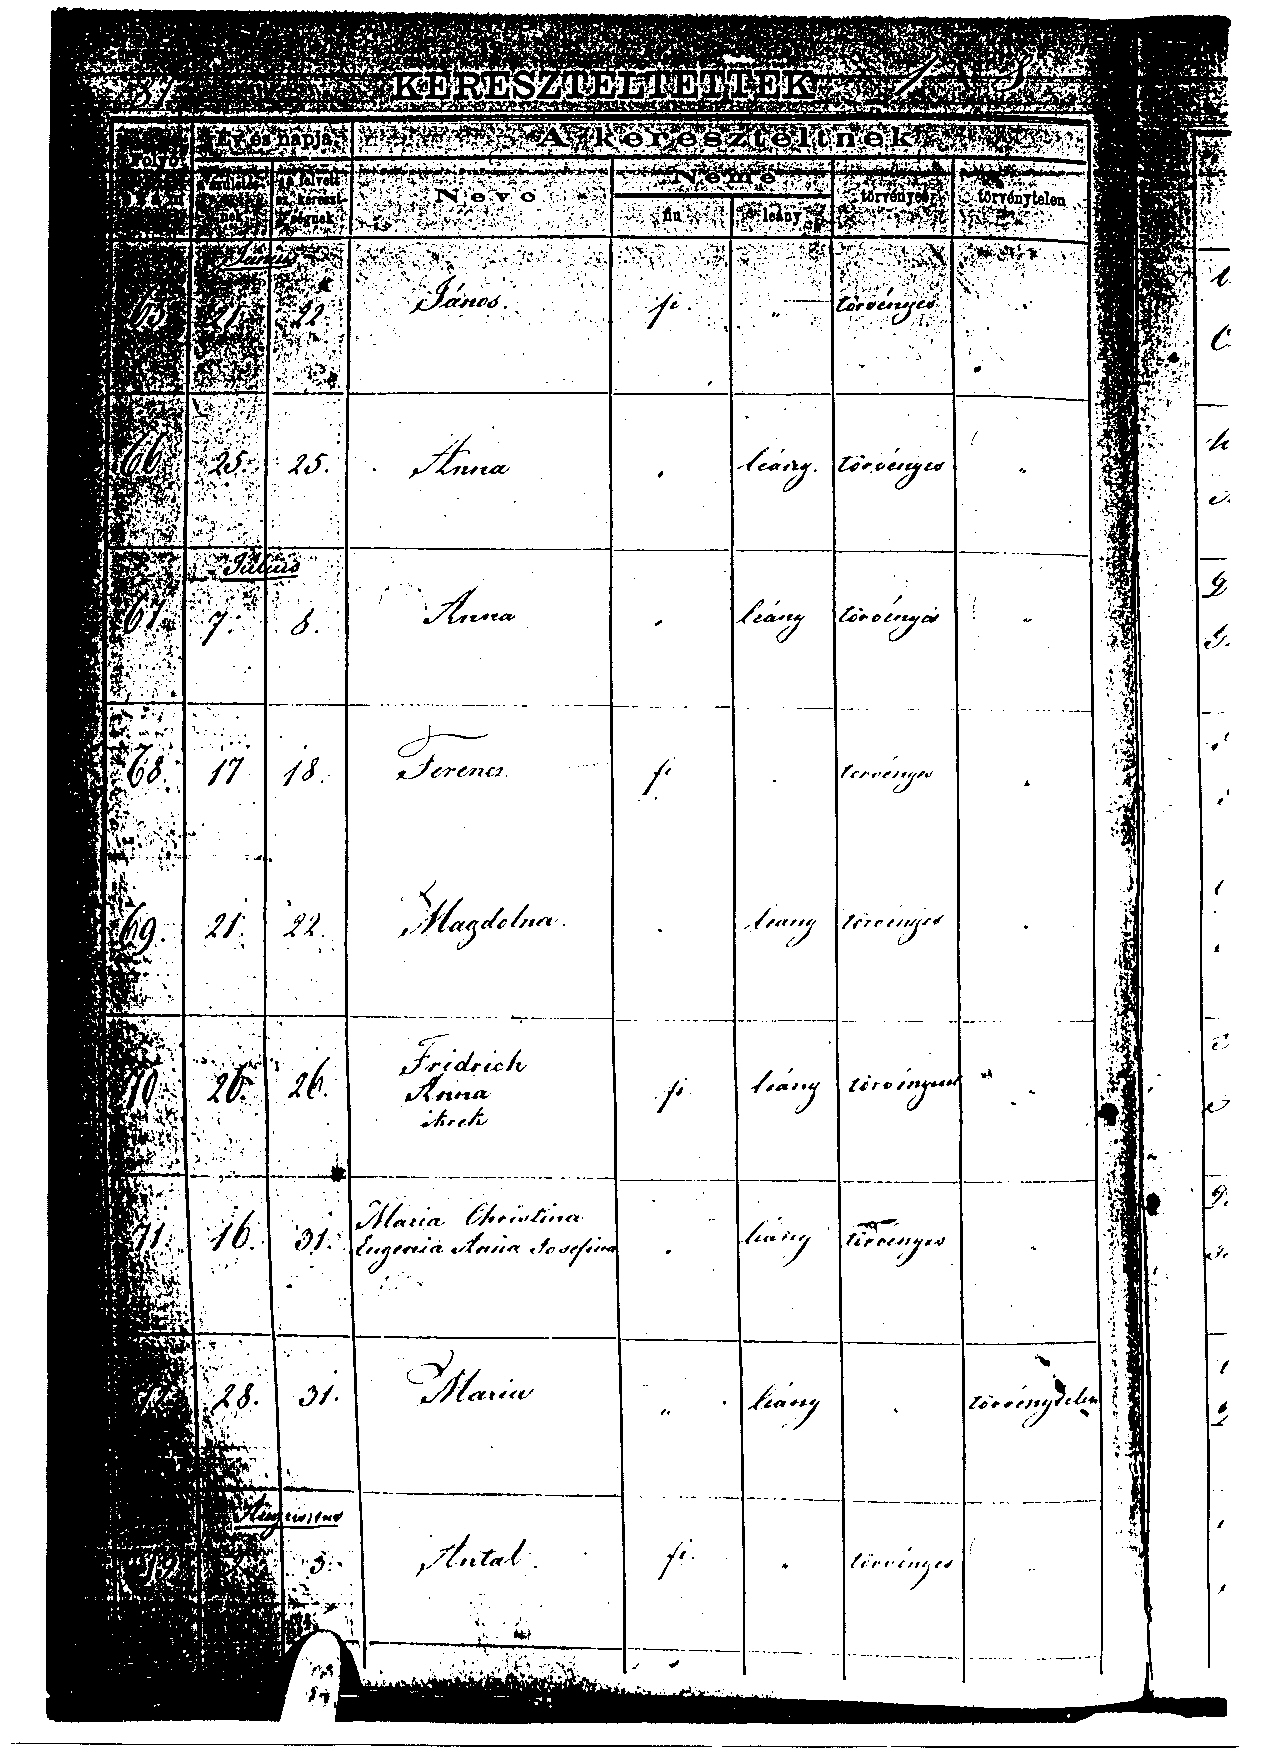 87 KERESZTELTETTEK 18
Folyó szám
Év és napja
A kereszteltnek
születésének
Neve
Neme
fiu
leány
törvényes
törvénytelen
Június
65 21. 22 János. fi. „ törvényes
66 25. 25. Anna leány. törvényes „
Július
67. 7. 8. Anna leány törvényes „
68. 17 18. Ferencz. fi törvényes
69. 21. 22. Magdolna. leany törvényes
70 26. 26. Fridrich
Anna fi leány törvényes „
ikrek
71. 16. 31. Maria Christina
Eugenia Anna Josefina leány törvényes
28. 31. Maria „ leány törvénytelen
Augusztus
3. Antal. fi. „ törvényes